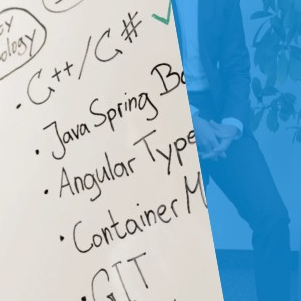 ology
• C++/C#
• Java Spring Bo
• Angular Type
• Container M
• GIT